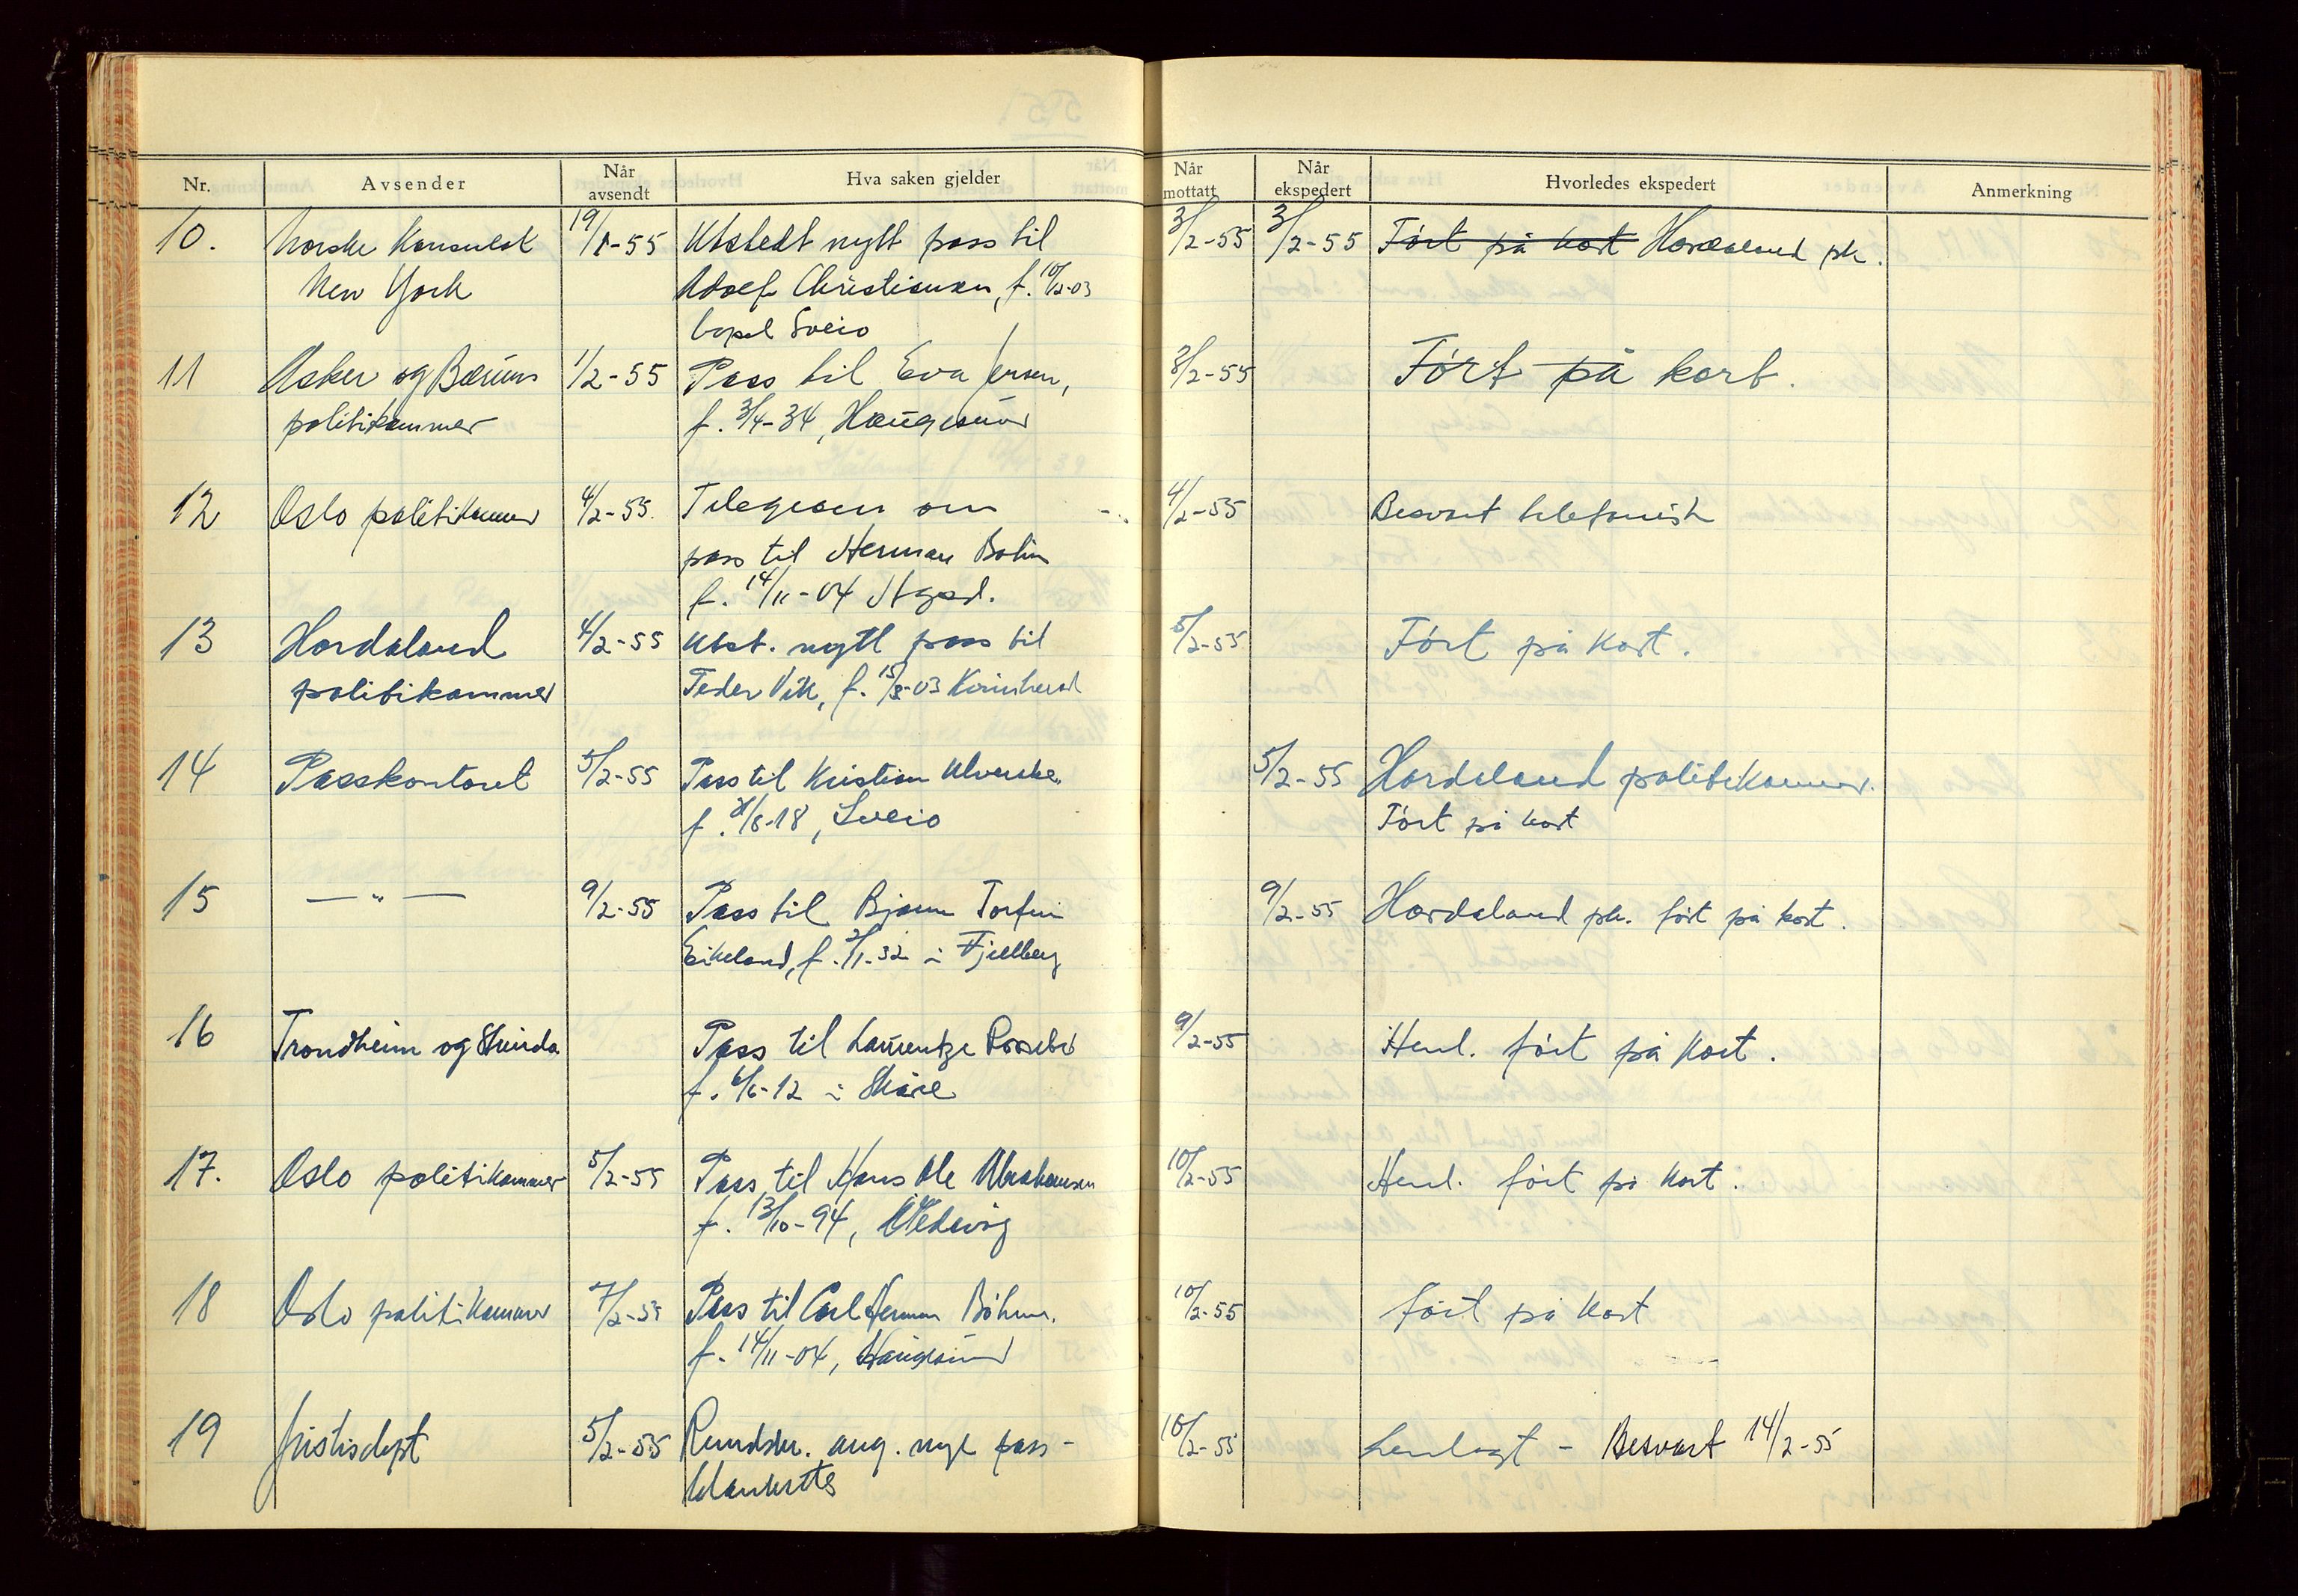 Nr. Avsender Når avsendt Hva saken gjelder Når mottatt Når ekspedert Hvorledes ekspedert Anmerkning
10. Norske Konsulat 19/1-55 Utstedt nytt pass til 3/2-55 3/2-55 Ført på kort Hordaland pk.
New York Adolf Christiansen, f. 10/2-03
bopel Sveio
11 Asker og Bærum 1/2-55 Pass til Eva Jensen, 3/2-55 Ført på kort.
politikammer f. 3/4-34, Haugesund
12 Oslo politikammer 4/2-55. Telegram om 4/2-55 Besvart telefonisk
pass til Herman Bohm
f. 14/11-04 Hgsd.
13 Hordaland 4/2-55 Utst. nytt pass til 5/2-55 Ført på kort.
politikammer Peder Vik, f. 15/8-03 Kvinherad
14 Passkontoret 5/2-55 Pass til Kristian 5/2-55 Hordaland politikammer.
f. /8-18, Sveio Ført på kort
15 — " — 9/2-55 Pass til Bjarne Torfin 9/2-55 Hordaland pk. ført på kort.
Eikeland, f. 2/1-32 i Fjellberg
16 Trondheim og Strinda Pass til Lauentze 9/2-55 Henl. ført på kort.
f. 6/6-12 i Skåre
17. Oslo politikammer 5/2-55 Pass til Hans Ole Abrahamsen 10/2-55 Henl. ført på kort.
f. 13/10-94,
18 Oslo politikammer 7/2-55 Pass til Carl Herman Böhm. 10/2-55 ført på kort
f. 14/11-04, Haugesund
19 Justisdept 5/2-55 Rundskr. ang. nye pass- 10/2-55 henlagt - Besvart 14/2-55
blanketter